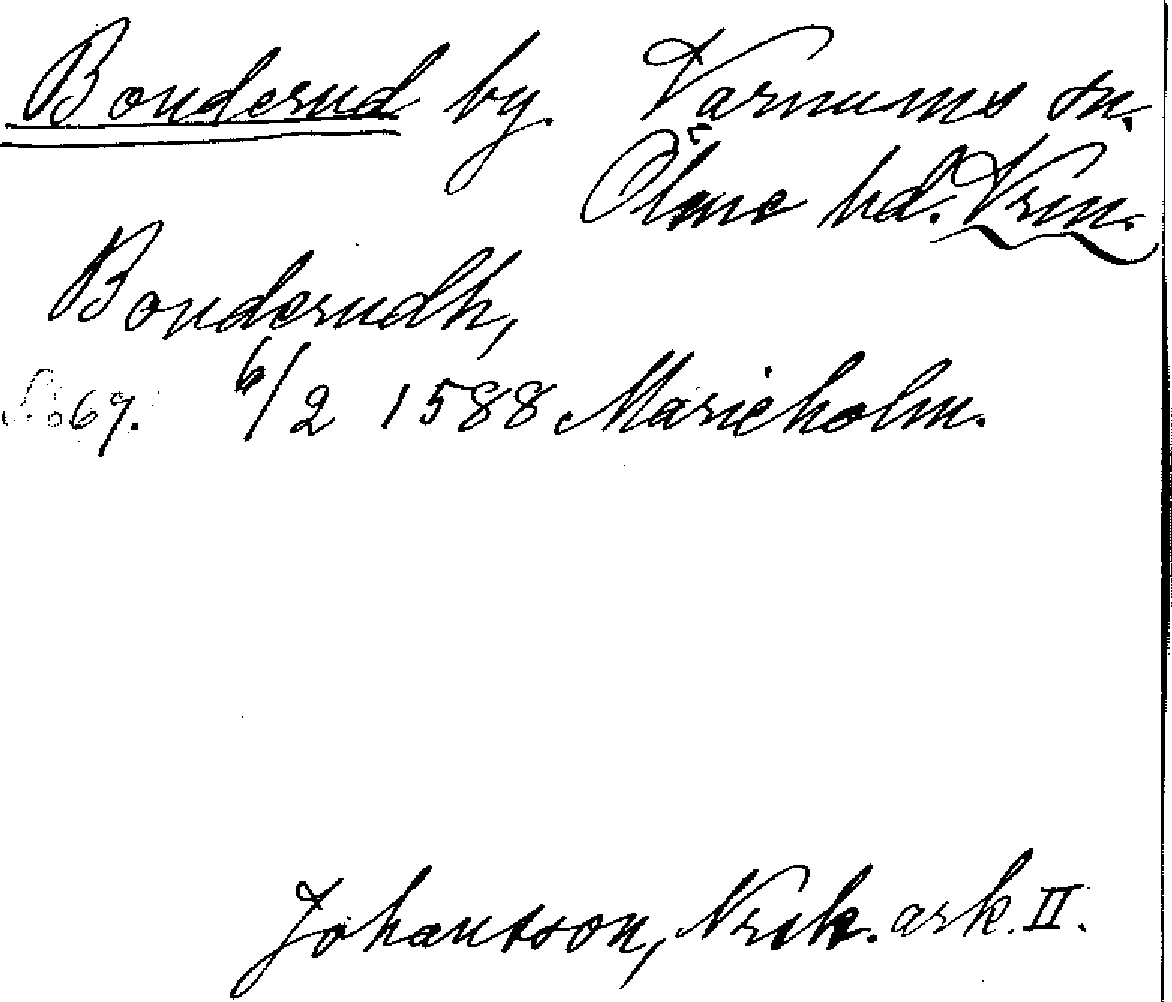 Bonderud by. Varnums sn.
Ölme hd. Vrm.
Bonderudh,
S. 69. 6/2 1588 Marieholm.
Johansson, Nrik. ark. II.